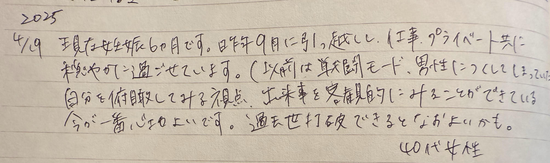 2025
4/19 現在妊娠6ヵ月です。昨年9月に引っ越しし、仕事、プライベート共に
穏やかに過ごせています。(以前は戦闘モード、男性につくしてしまっていた
自分を俯瞰してみる視点、出来事を客観的にみることができている
今が一番心地よいです。過去世打破できるとなおよいかも。
40代女性